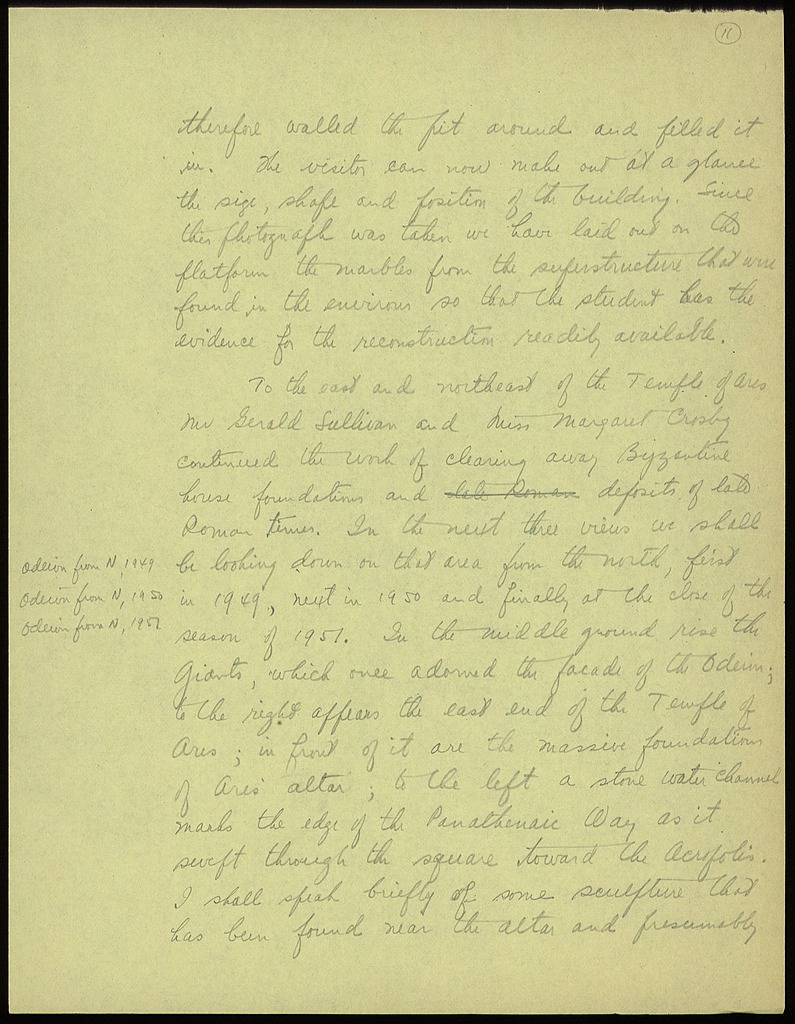 11
therefore walled the pit around and filled it
in. The visitor can now make out at a glance
the size, shape and position of the building. Since
this photograph was taken we have laid out on the
platform the marbles from the superstructure that were
found in the environs so that the student has the
evidence for the reconstruction readily available.
To the east and northeast of the Temple of Ares
Mr Gerald Sullivan and Miss Margaret Crosby
continued the work of clearing away Byzantine
house foundations and late Roman deposits of late
Roman times. In the next three views we shall
be looking down on that area from the north, first
in 1949, next in 1950 and finally at the close of the
season of 1951. In the middle ground rise the
Giants, which once adorned the facade of the Odeion;
to the right appears the east end of the Temple of
Ares; in front of it are the massive foundations
of Ares' altar; to the left a stone water channel
marks the edge of the Panathenaic Way as it
swept through the square toward the Acropolis.
I shall speak briefly of some sculpture that
has been found near the altar and presumably
Odeion from N, 1949
Odeion from N, 1950
Odeion from N, 1951